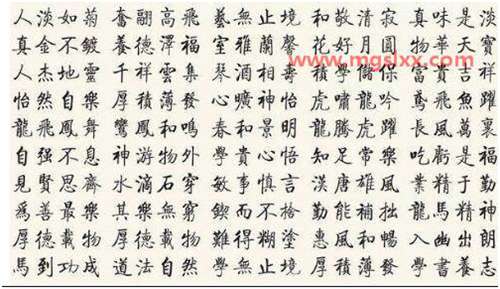 人淡如菊 奮翮高飛 藝無止境 和敬清寂 真味是淡
真金不鍍 養德澤福 室雅蘭馨 花好月圓 物華天寶
人杰地靈 千祥雲集 琴酒相 積學 富貴吉祥
怡然自樂 厚積薄發 心曠神怡 虎嘯龍吟 鳶飛魚躍
龍飛鳳舞 鸞鳳和鳴 春和景明 龍騰虎躍 長風萬裏
自强不息 神游物外 學貴心悟 知足常樂 吃虧是福
見賢思齊 水滴石穿 敏事慎言 漢唐雄風 業精于勤
爲善最樂 其樂無窮 鍥而不捨 勤能補拙 龍馬精神
厚德載物 厚德載物 難得糊塗 惠風和暢 入幽出朗
馬到功成 道法自然 學無止境 厚積薄發 學書養志
www.mgslxx.com